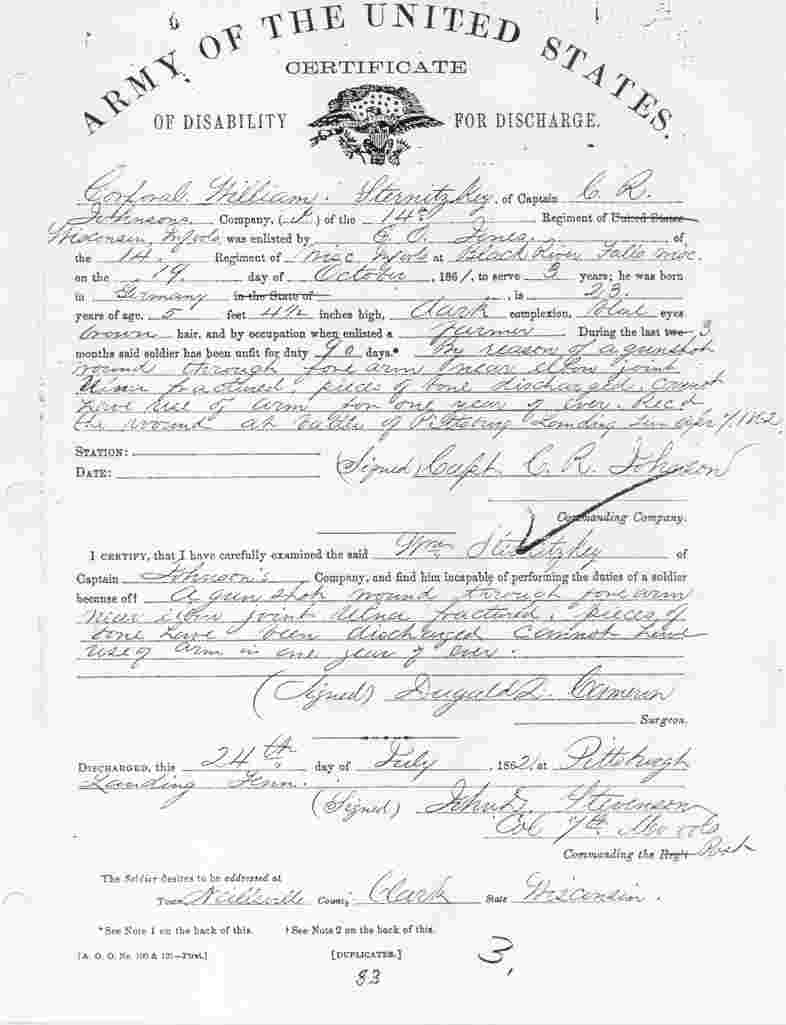 ARMY OF THE UNITED STATES.
CERTIFICATE
OF DISABILITY FOR DISCHARGE.
Corporal William Sternitzkey, of Captain C. R.
Johnsons Company, ( ) of the 14th Regiment of United States
Wisconsin Vols, was enlisted by C. O. of
the 14 Regiment of Wisc Vols at Black River Falls Wisc.
on the 19 day of October, 1861, to serve 3 years; he was born
in Germany in the State of , is 23
years of age, 5 feet 4½ inches high, Dark complexion, blue eyes
brown hair, and by occupation when enlisted a Farmer During the last two 3
months said soldier has been unfit for duty 90 days.* By reason of a gunshot
wound through fore arm near elbow joint
Ulna fractured, pieces of bone discharged. Cannot
have use of arm for one year if ever. Rec'd
the wound at battle of Pittsburg Landing Tenn Apr 7, 1862
STATION:
DATE: (Signed) Capt C. R. Johnson
Commanding Company.
I CERTIFY, that I have carefully examined the said Wm Sternitzkey of
Captain Johnson's Company, and find him incapable of performing the duties of a soldier
because of† A gun shot wound through fore arm
near elbow joint Ulna fractured, pieces of
bone have been discharged Cannot have
use of arm in one year if ever.
(Signed) Dugald D. Cameron
Surgeon.
DISCHARGED, this 24th day of July, 1862, at Pittsburgh
Landing Tenn.
(Signed) John D. Stevenson
Col 7th Mo Vols
Commanding the Reg't Post
The Soldier desires to be addressed at
Town Neillsville County Clark State Wisconsin.
*See Note 1 on the back of this. †See Note 2 on the back of this.
[A. G. O. No. 100 & 101—First.] [DUPLICATES.] 3,
83